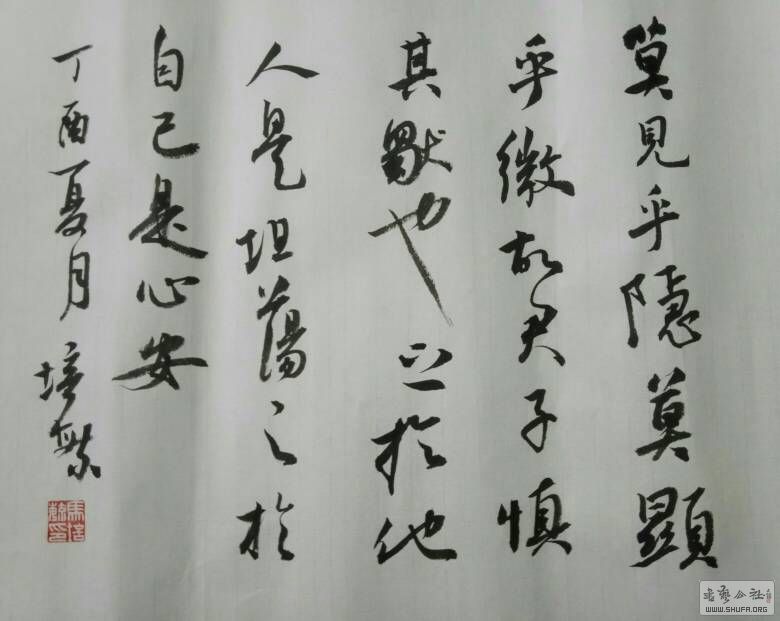 莫見乎隱莫顯
乎微故君子慎
其獨也之於他
人是坦蕩之於
自己是心安
丁酉夏月 培繁
書藝公社
WWW.SHUFA.ORG